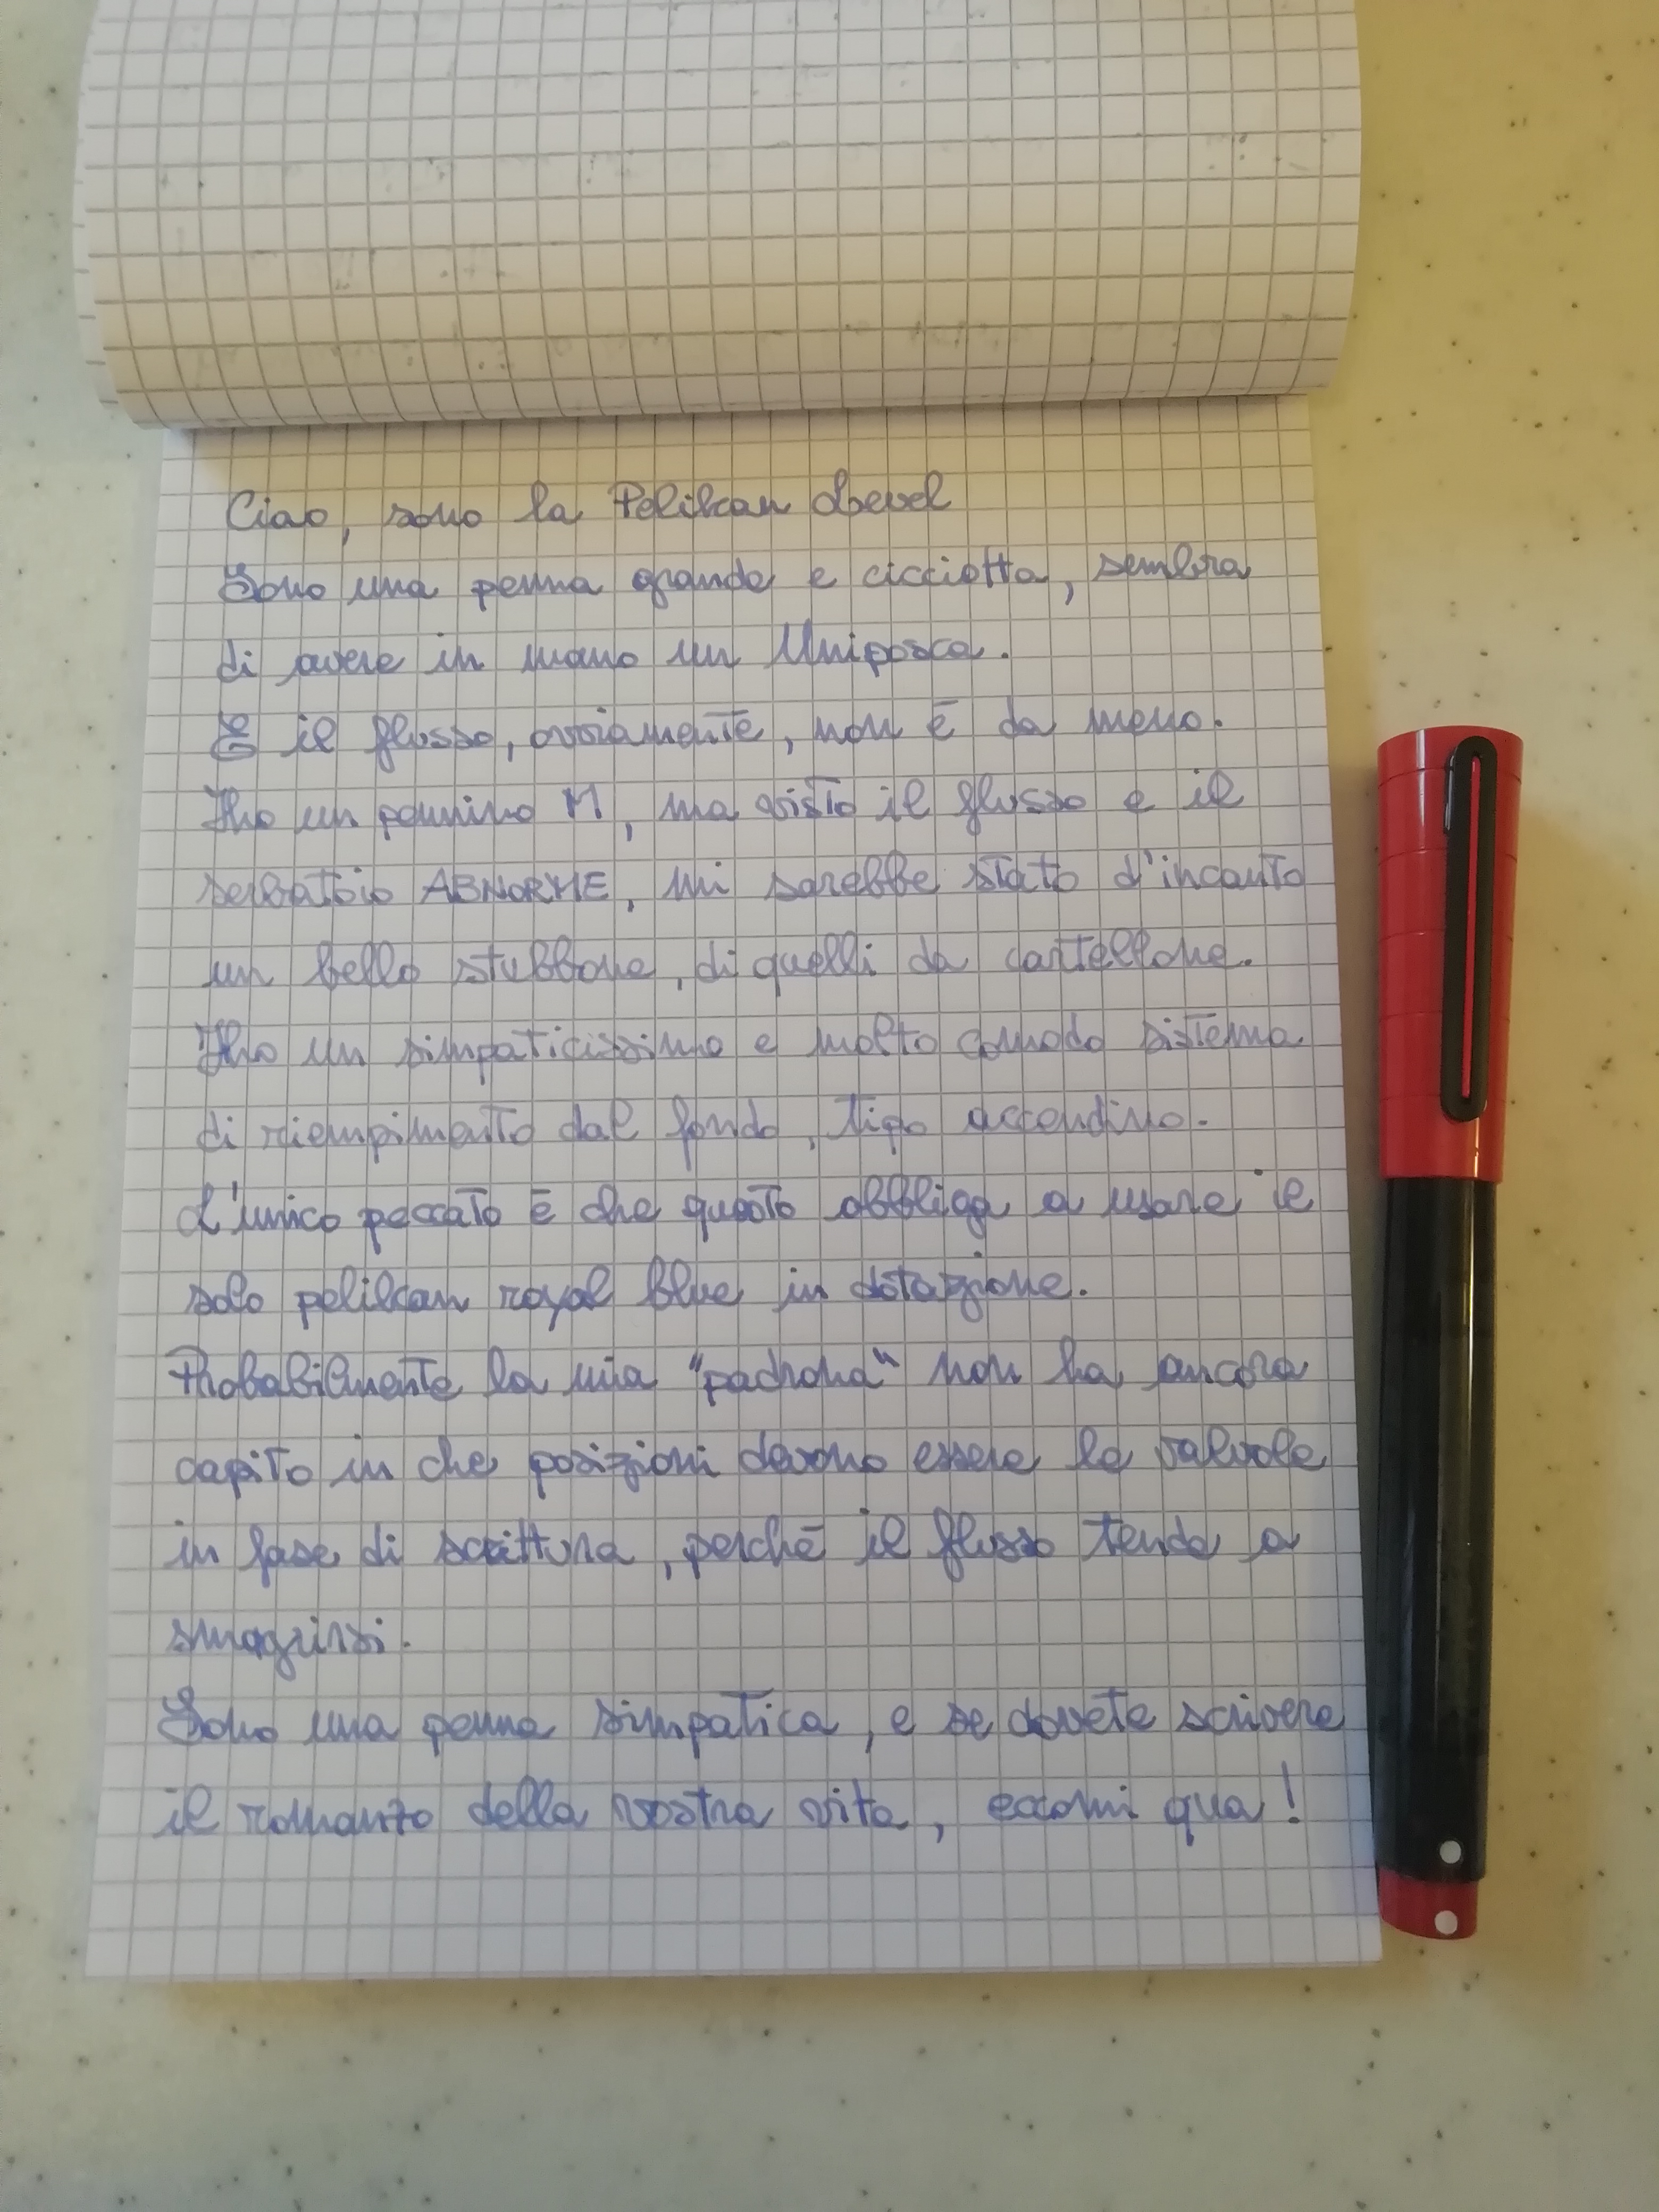 Ciao, sono la Pelikan Level
Sono una penna grande e cicciotta, sembra
di avere in mano un Uniposca.
E il flusso, ovviamente, non è da meno.
Ho un pennino M, ma visto il flusso e il
serbatoio ABNORME, mi sarebbe stato d'incanto
un bello stubbone, di quelli da cartellone.
Ho un simpaticissimo e molto comodo sistema
di riempimento dal fondo, tipo accendino.
L'unico peccato è che questo obbliga a usare il
solo pelikan royal blue in dotazione.
Probabilmente la mia "padrona" non ha ancora
capito in che posizioni devono essere le valvole
in fase di scrittura, perché il flusso tende a
smagrirsi.
Sono una penna simpatica, e se dovete scrivere
il romanzo della vostra vita, eccomi qua!